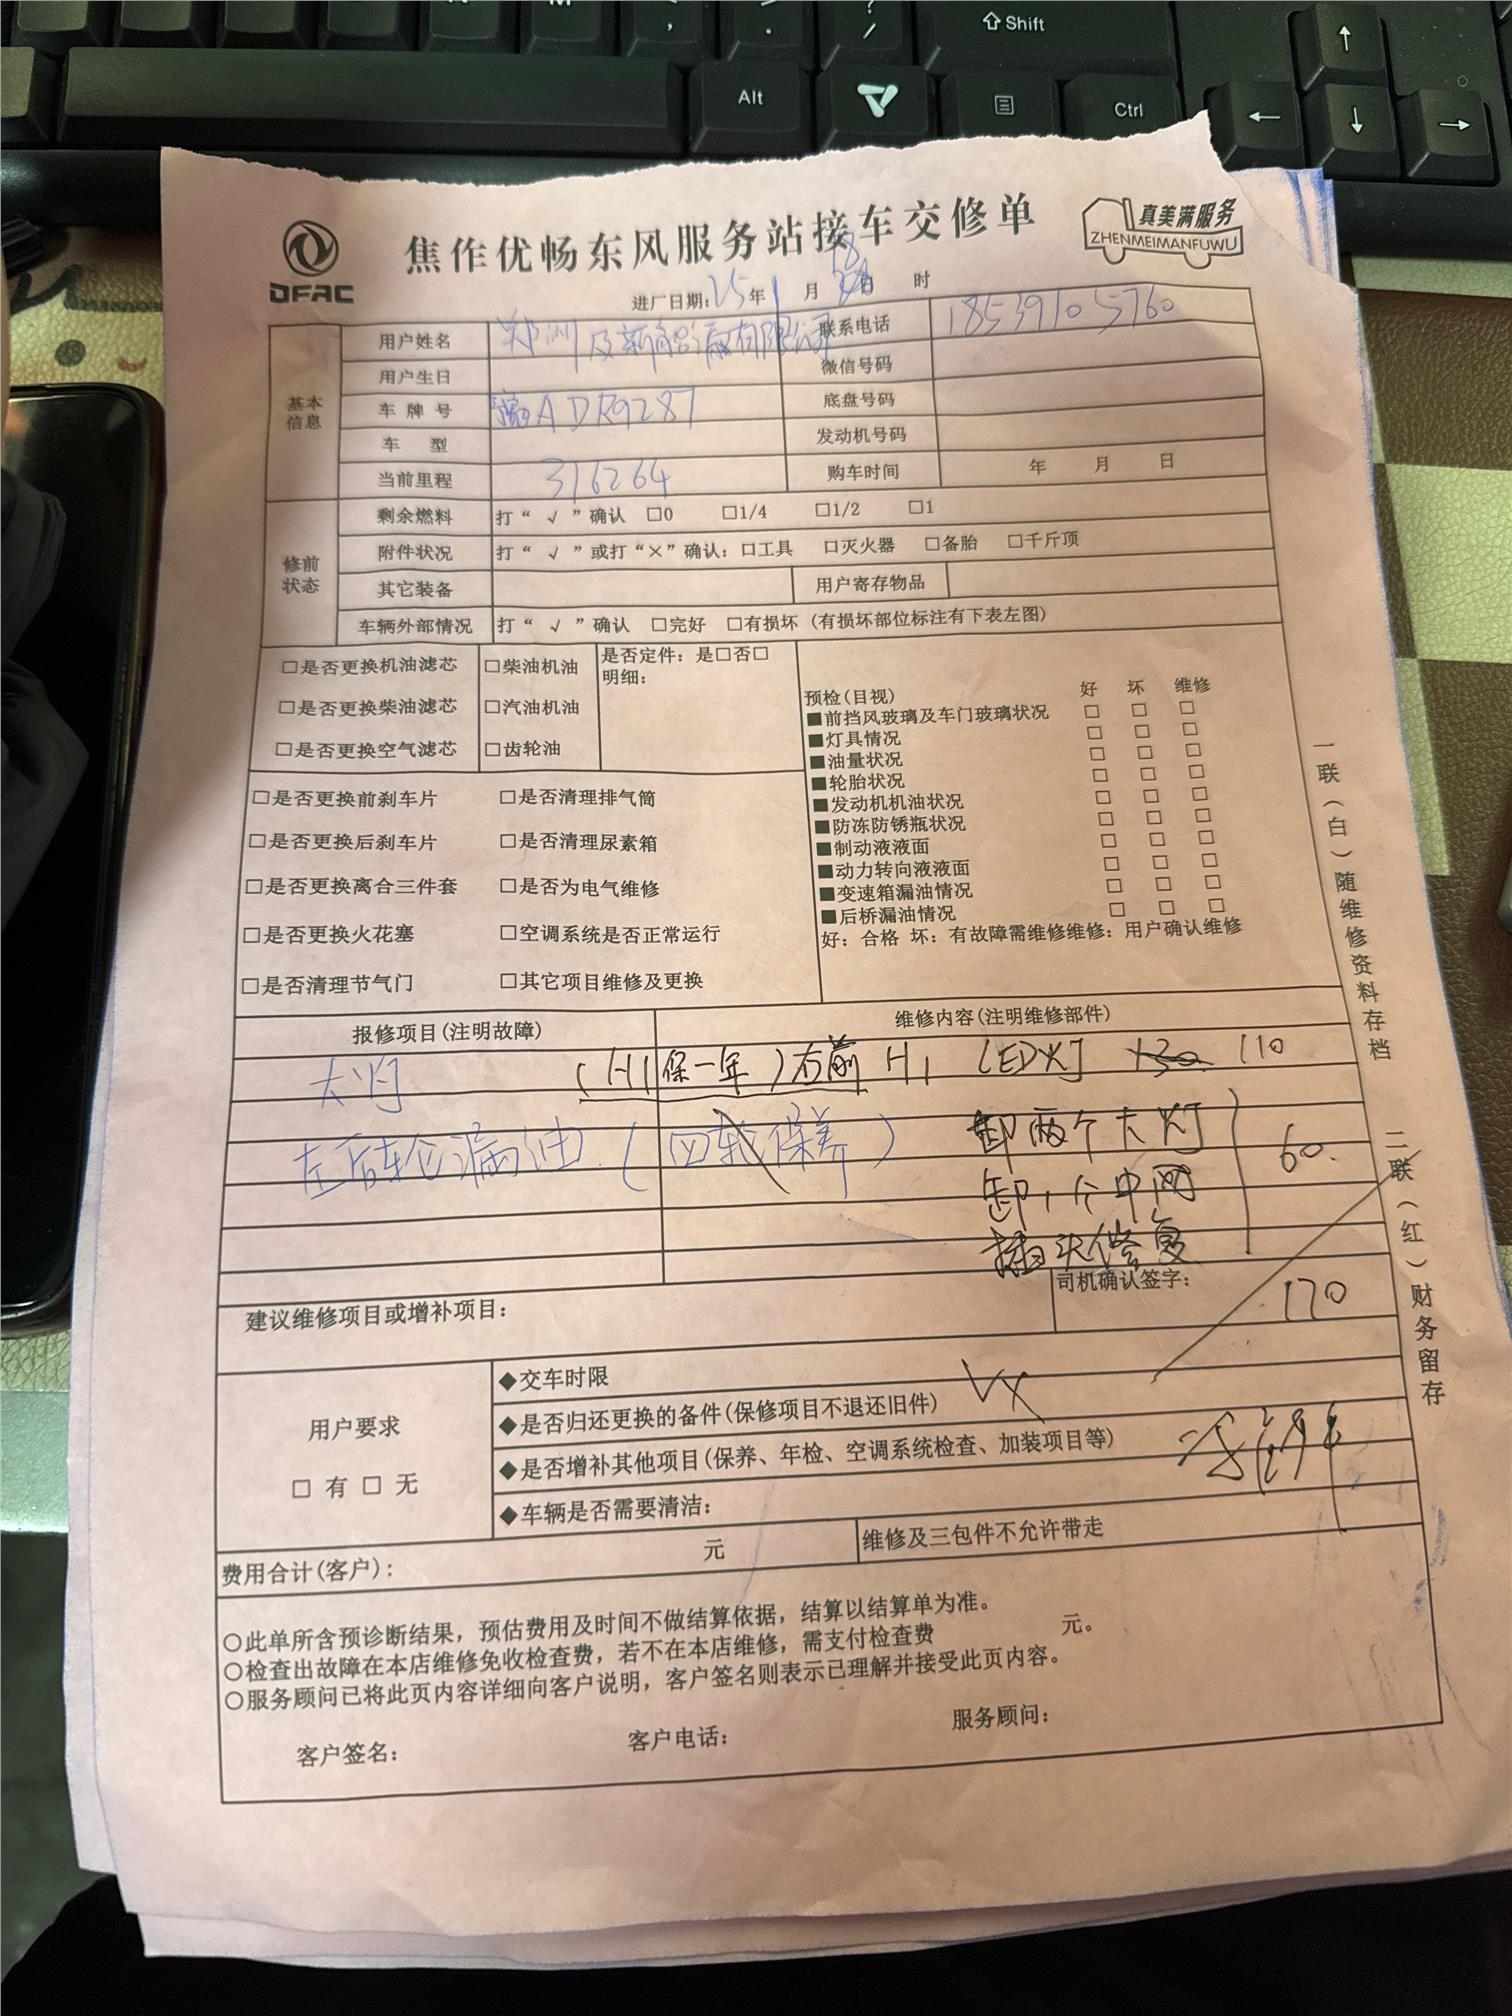 Shift
Alt
Ctrl
DFAC
焦作优畅东风服务站接车交修单
真美满服务
ZHENMEIMANFUWU
进厂日期: 25年 1 月 日 时
基本信息
用户姓名 郑州
联系电话 18539105760
用户生日
微信号码
车牌号 豫ADR9287
底盘号码
车型
发动机号码
当前里程 316264
购车时间 年 月 日
修前状态
剩余燃料 打“√”确认 □0 □1/4 □1/2 □1
附件状况 打“√”或打“×”确认: □工具 □灭火器 □备胎 □千斤顶
其它装备
用户寄存物品
车辆外部情况 打“√”确认 □完好 □有损坏 (有损坏部位标注有下表左图)
□是否更换机油滤芯 □柴油机油
□是否更换柴油滤芯 □汽油机油
□是否更换空气滤芯 □齿轮油
是否定件: 是□否□
明细:
□是否更换前刹车片 □是否清理排气筒
□是否更换后刹车片 □是否清理尿素箱
□是否更换离合三件套 □是否为电气维修
□是否更换火花塞 □空调系统是否正常运行
□是否清理节气门 □其它项目维修及更换
预检(目视) 好 坏 维修
■前挡风玻璃及车门玻璃状况 □ □ □
■灯具情况 □ □ □
■油量状况 □ □ □
■轮胎状况 □ □ □
■发动机机油状况 □ □ □
■防冻防锈瓶状况 □ □ □
■制动液液面 □ □ □
■动力转向液液面 □ □ □
■变速箱漏油情况 □ □ □
■后桥漏油情况 □ □ □
好: 合格 坏: 有故障需维修维修: 用户确认维修
报修项目(注明故障) 维修内容(注明维修部件)
大灯 (H1保一年) 右前 H1 LED灯 130 110
左后轮漏油 (四轮保养) 卸两个大灯
卸1个中网 60.
插头修复
建议维修项目或增补项目:
司机确认签字: 170
用户要求
□ 有 □ 无
◆交车时限
◆是否归还更换的备件(保修项目不退还旧件)
◆是否增补其他项目(保养、年检、空调系统检查、加装项目等)
◆车辆是否需要清洁:
费用合计(客户): 元
维修及三包件不允许带走
○此单所含预诊断结果, 预估费用及时间不做结算依据, 结算以结算单为准。
○检查出故障在本店维修免收检查费, 若不在本店维修, 需支付检查费 元。
○服务顾问已将此页内容详细向客户说明, 客户签名则表示已理解并接受此页内容。
客户签名: 客户电话: 服务顾问:
一联(白)随维修资料存档 二联(红)财务留存